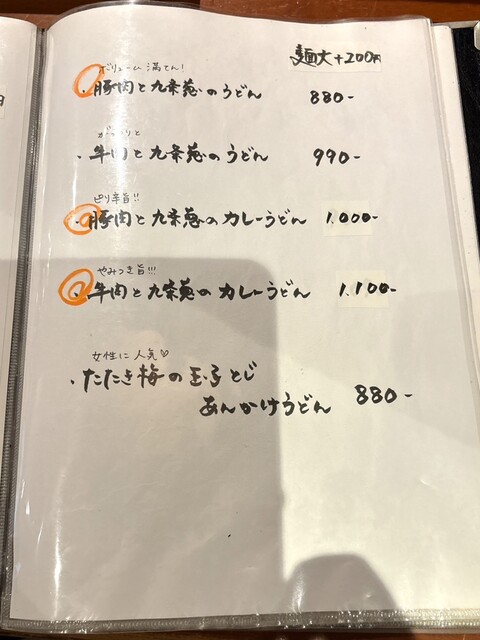 麺大+200円
ボリューム満てん!
・豚肉と九条葱のうどん 880-
がっつりと
・牛肉と九条葱のうどん 990-
ピリ辛旨!!
・豚肉と九条葱のカレーうどん 1.000-
やみつき旨!!!
・牛肉と九条葱のカレーうどん 1.100-
女性に人気♡
・たたき梅の玉子とじ
あんかけうどん 880-